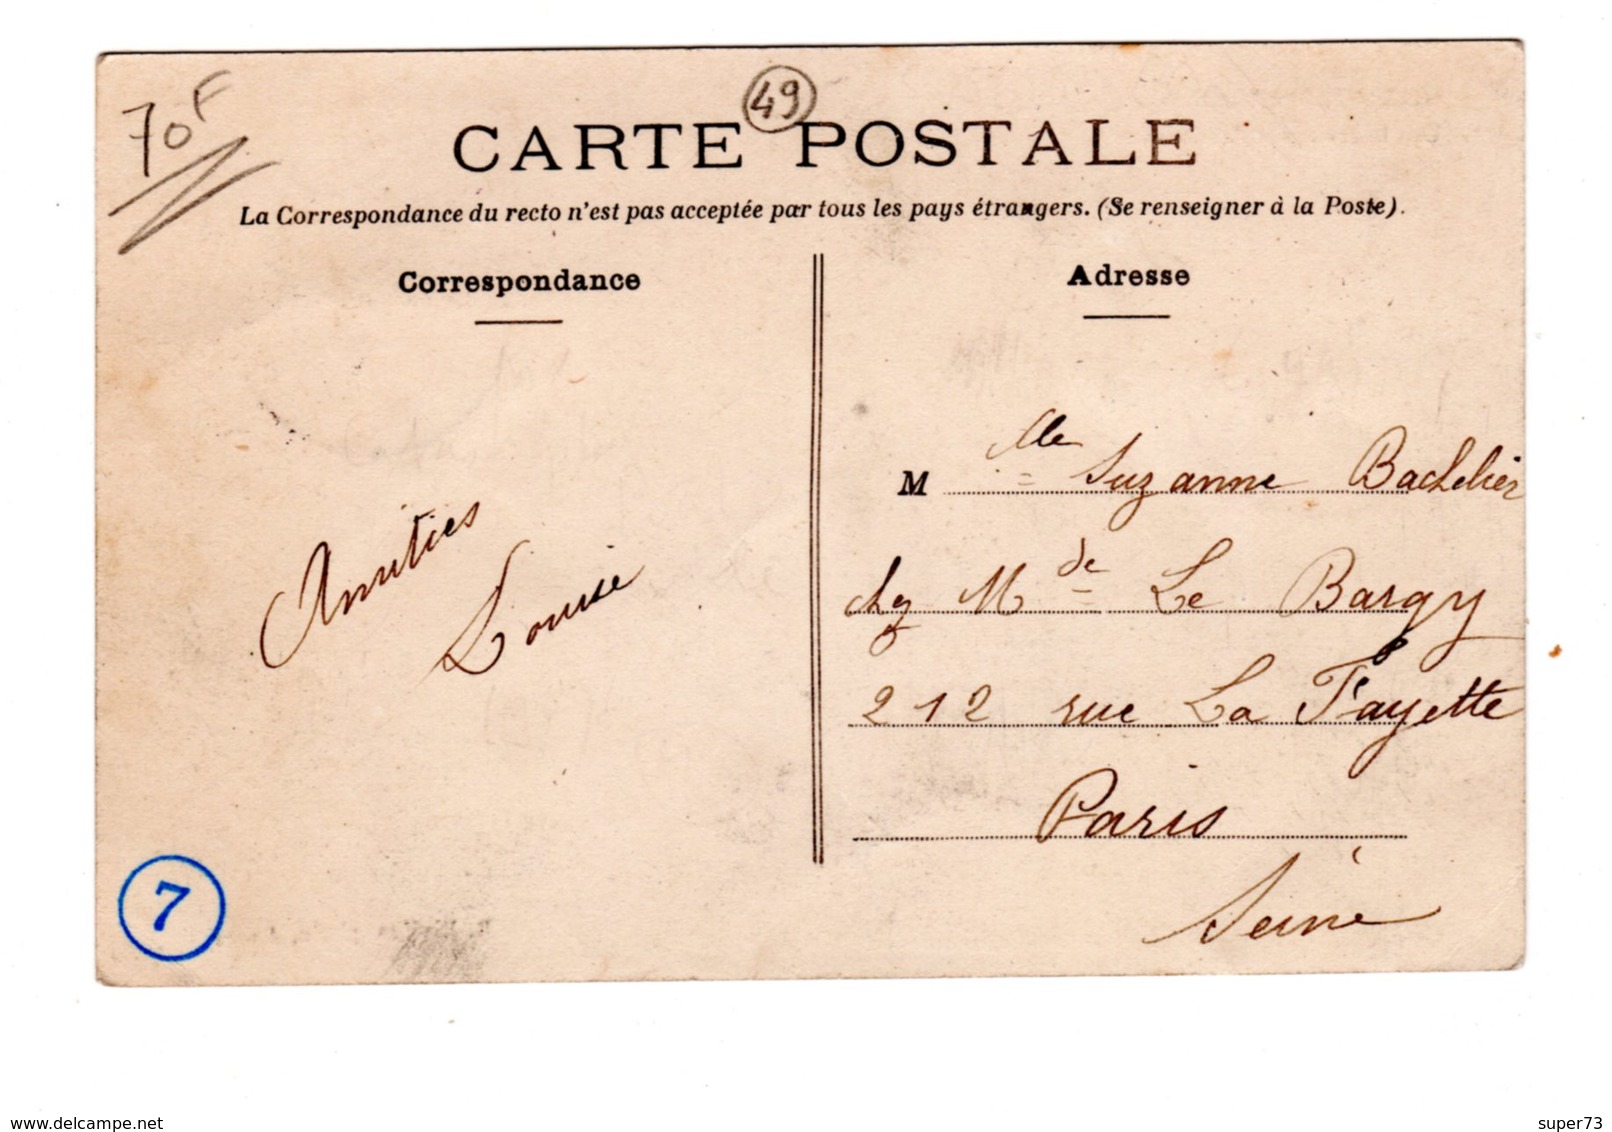 70F
49
CARTE POSTALE
La Correspondance du recto n'est pas acceptée par tous les pays étrangers. (Se renseigner à la Poste).
Correspondance
Amitiés
Louise
7
Adresse
M lle Suzanne Bachelier
chez Mde Le Bargy
212 rue La Fayette
Paris
Seine
www.delcampe.net
super73